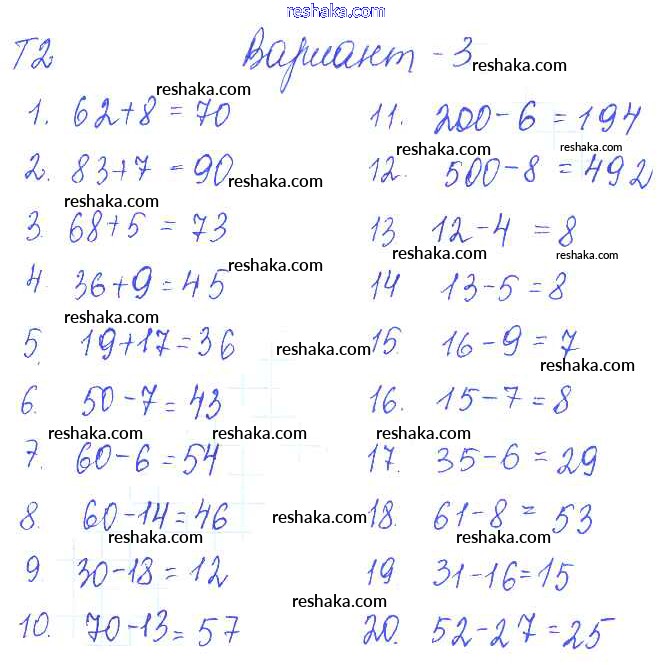 reshaka.com
Т2 Вариант - 3
reshaka.com
reshaka.com
1. 62+8 = 70
11. 200-6 = 194
reshaka.com
reshaka.com
2. 83+7 = 90
reshaka.com
12. 500-8 = 492
reshaka.com
3. 68+5 = 73
13 12-4 = 8
reshaka.com
reshaka.com
reshaka.com
4. 36+9=45
14 13-5=8
reshaka.com
5. 19+17=36
reshaka.com
15. 16-9=7
reshaka.com
6. 50-7=43
16. 15-7=8
reshaka.com
reshaka.com
reshaka.com
7. 60-6=54
17. 35-6=29
8. 60-14=46
reshaka.com
18. 61-8= 53
9. 30-18=12
19 31-16=15
reshaka.com
reshaka.com
reshaka.com
10. 70-13=57
20. 52-27=25